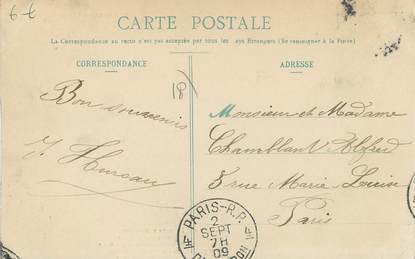 6 €
CARTE POSTALE
La Correspondance au recto n'est pas acceptée par tous les pays Étrangers (Se renseigner à la Poste)
CORRESPONDANCE
ADRESSE
18
Bon souvenir
J.
Monsieur et Madame
Chamblant Alfred
8 rue Marie Louise
Paris
PARIS-R.P.
2
SEPT
7H
09